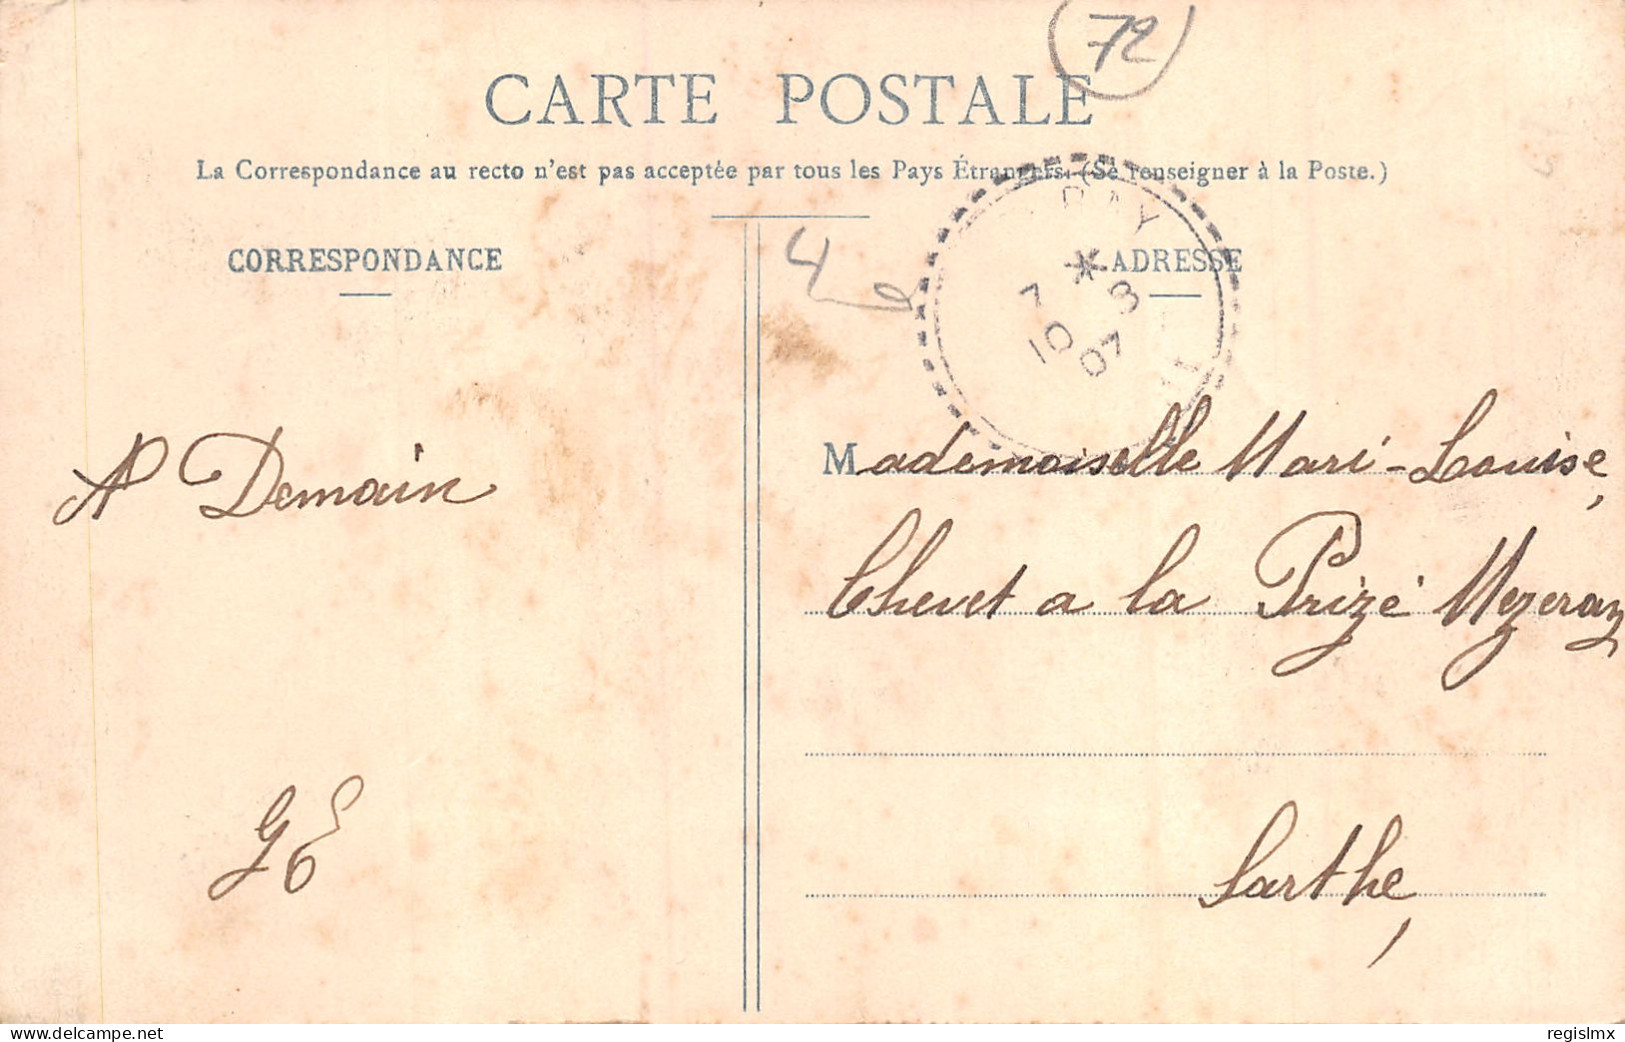 72
CARTE POSTALE
La Correspondance au recto n'est pas acceptée par tous les Pays Étrangers. (Se renseigner à la Poste.)
CORRESPONDANCE
ADRESSE
4
7 * 3
10 07
A Demain
GE
Mademoiselle Mari-Louise,
Chevet a la Prizé Mezeray
Sarthe,
www.delcampe.net
regislmx